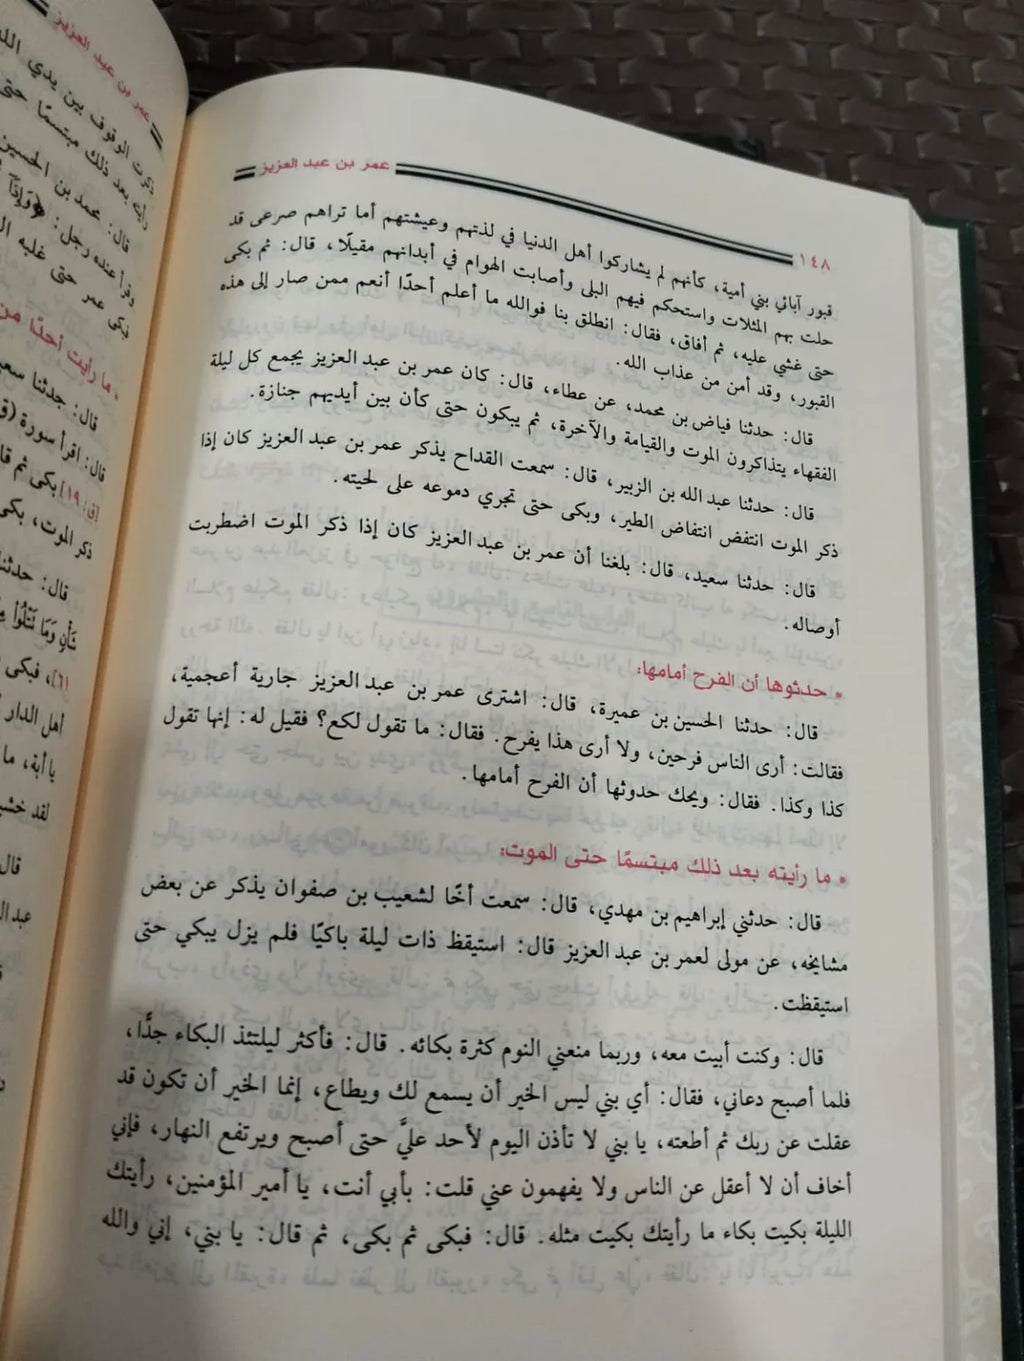 عمر بن عبد العزيز
١٤٨
قبور آبائي بني أمية، كأنهم لم يشاركوا أهل الدنيا في لذتهم وعيشتهم أما تراهم صرعى قد
حلت بهم المثلات واستحكم فيهم البلى وأصابت الهوام في أبدانهم مقيلًا، قال: ثم بكى
حتى غشي عليه، ثم أفاق، فقال: انطلق بنا فوالله ما أعلم أحدًا أنعم ممن صار إلى هذه
القبور، وقد أمن من عذاب الله.
قال: حدثنا فياض بن محمد، عن عطاء، قال: كان عمر بن عبد العزيز يجمع كل ليلة
الفقهاء يتذاكرون الموت والقيامة والآخرة، ثم يبكون حتى كأن بين أيديهم جنازة.
قال: حدثنا عبد الله بن الزبير، قال: سمعت القداح يذكر عمر بن عبد العزيز كان إذا
ذكر الموت انتفض انتفاض الطير، وبكى حتى تجري دموعه على لحيته.
قال: حدثنا سعيد، قال: بلغنا أن عمر بن عبد العزيز كان إذا ذكر الموت اضطربت
أوصاله.
• حدثوها أن الفرح أمامها:
قال: حدثنا الحسين بن عميرة، قال: اشترى عمر بن عبد العزيز جارية أعجمية،
فقالت: أرى الناس فرحين، ولا أرى هذا يفرح. فقال: ما تقول لكع؟ فقيل له: إنها تقول
كذا وكذا. فقال: ويحك حدثوها أن الفرح أمامها.
• ما رأيته بعد ذلك مبتسمًا حتى الموت:
قال: حدثني إبراهيم بن مهدي، قال: سمعت أخًا لشعيب بن صفوان يذكر عن بعض
مشايخه، عن مولى لعمر بن عبد العزيز قال: استيقظ ذات ليلة باكيًا فلم يزل يبكي حتى
استيقظت.
قال: وكنت أبيت معه، وربما منعني النوم كثرة بكائه. قال: فأكثر ليلتئذ البكاء جدًّا،
فلما أصبح دعاني، فقال: أي بني ليس الخير أن يسمع لك ويطاع، إنما الخير أن تكون قد
عقلت عن ربك ثم أطعته، يا بني لا تأذن اليوم لأحد عليَّ حتى أصبح ويرتفع النهار، فإني
أخاف أن لا أعقل عن الناس ولا يفهمون عني قلت: بأبي أنت، يا أمير المؤمنين، رأيتك
الليلة بكيت بكاء ما رأيتك بكيت مثله. قال: فبكى ثم بكى، ثم قال: يا بني، إني والله
عمر بن عبد العزيز
ذكرت الوقوف بين يدي
رأيته بعد ذلك مبتسمًا حتى
قال: محمد بن الحسين
وقرأ عنده رجل: ﴿وَإِذَا
فبكى عمر حتى غلبه
• ما رأيت أحدًا من
قال: حدثنا سعيد
قال: اقرأ سورة (ق
[ق: ١٩] بكى ثم
ذكر الموت، بكى
قال: حدثنا
شَأْنٍ وَمَا تَتْلُوا
٦١]، فبكى
أهل الدار
يا أبة، ما
لقد خشيت
قال